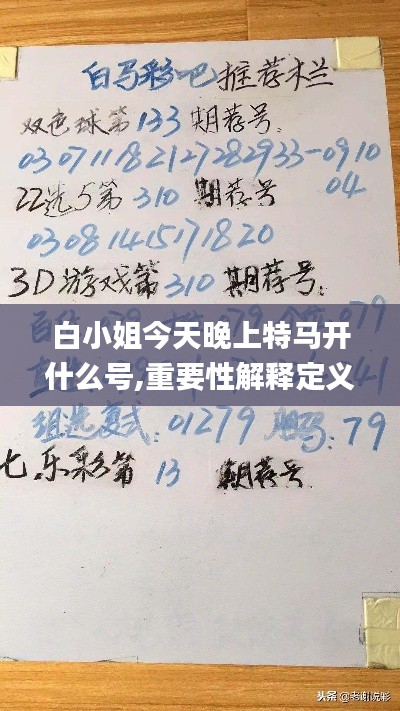 白马彩吧推荐栏
双色球第133期荐号:
03071118212728293 3-0910
22选5第310期荐号 04
03081415171820
3D游戏第310期荐号:
079
白小姐今天晚上特马开
什么号,重要性解释定义
41
组选复式:01279 胆码:79
七乐彩第13 期荐号
头条 @老谢说彩